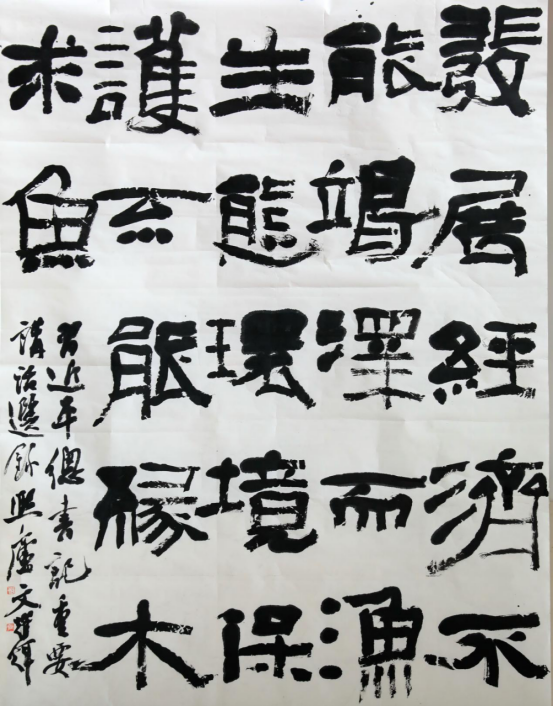 發展經濟不
能竭澤而漁
生態環境保
護不能緣木
求魚
習近平總書記重要
講話選錄